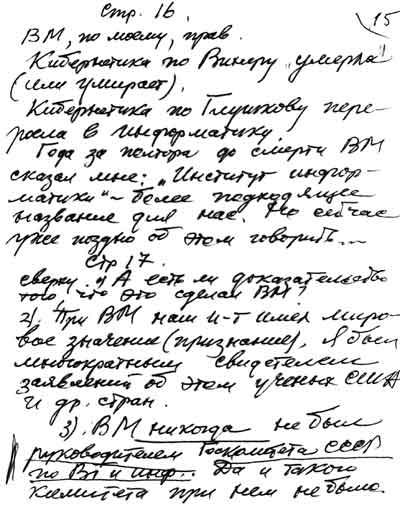 стр. 16.
15
ВМ, по моему, прав.
Кибернетика по Винеру умерла
(или умирает).
Кибернетика по Глушкову пере-
росла в информатику.
Года за полтора до смерти ВМ
сказал мне: „Институт инфор-
матики" – более подходящее
название для нас. Но сейчас
уже поздно об этом говорить...
Стр 17.
сверху. 1) А есть ли доказательства
того, что это сделал ВМ?
2). При ВМ наш и-т имел миро-
вое значение (признание), я был
многократным свидетелем
заявлений об этом ученых США
и др. стран.
3). ВМ никогда не был
руководителем Госкомитета СССР
по ВТ и инф... Да и такого
комитета при нем не было.